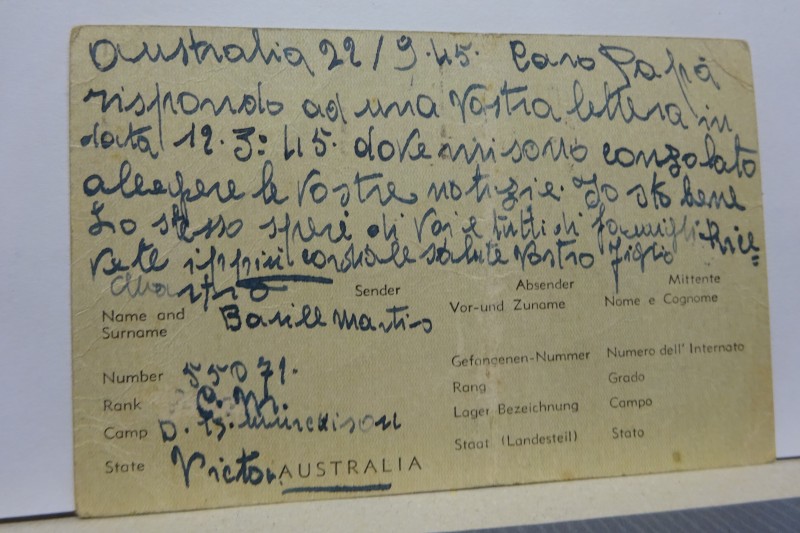 Australia 22/9.45. Caro Papà
rispondo ad una Vostra lettera in
data 12.3:45. dove mi sono conzolato
a leepere le Vostre notizie. Io sto bene
Lo stesso speri di Voi e tutti di famigli Rice=
vete i ppiù cordiale salute Vostro figlio
Martino
Sender Absender Mittente
Name and Surname Basile Martino Vor-und Zuname Nome e Cognome
Number 55071. Gefangenen-Nummer Numero dell' Internato
Rank Rang Grado
Camp D. 13. Murchison Lager Bezeichnung Campo
State Victor. AUSTRALIA Staat (Landesteil) Stato